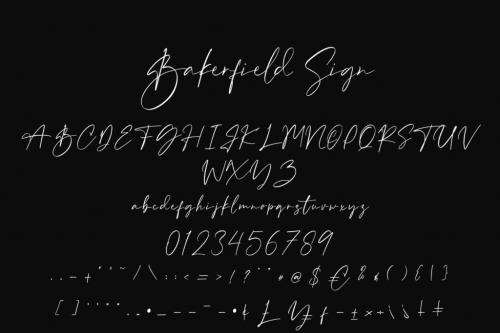 Bakerfield Sign
ABCDEFGHIJKLMNOPQRSTUV
WXYZ
abcdefghijklmnopqrstuvwxyz
0123456789
/ \ : ; < = > ! ? @ $ € & ( ) { | }
[ ] £ ¥